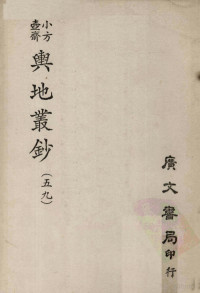 小方
壺齋
輿地叢鈔
(五九)
廣文書局
印行